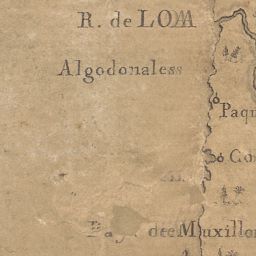 R. de LOM
Algodonaless
Paq
Co
dee Muxillo